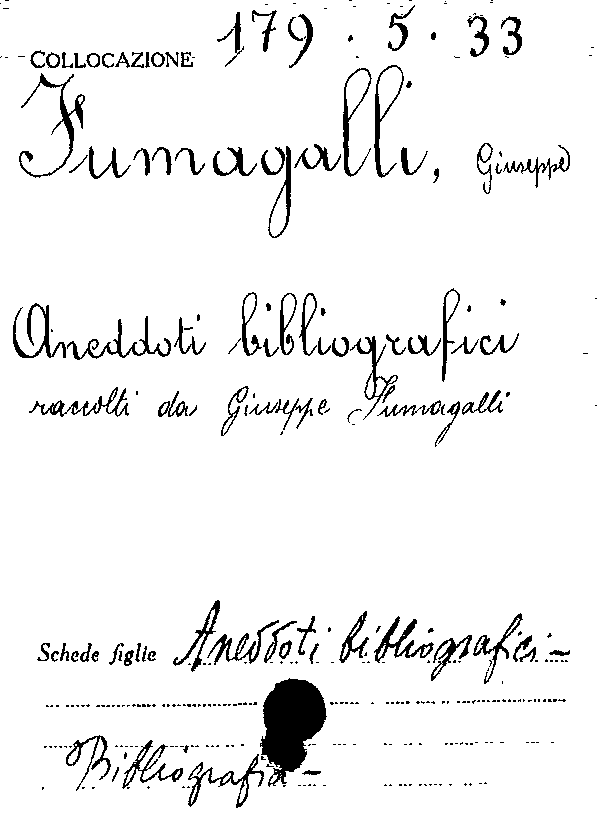 COLLOCAZIONE 179 . 5 . 33
Fumagalli, Giuseppe
Aneddoti bibliografici
raccolti da Giuseppe Fumagalli
Schede figlie Aneddoti bibliografici -
Bibliografia -